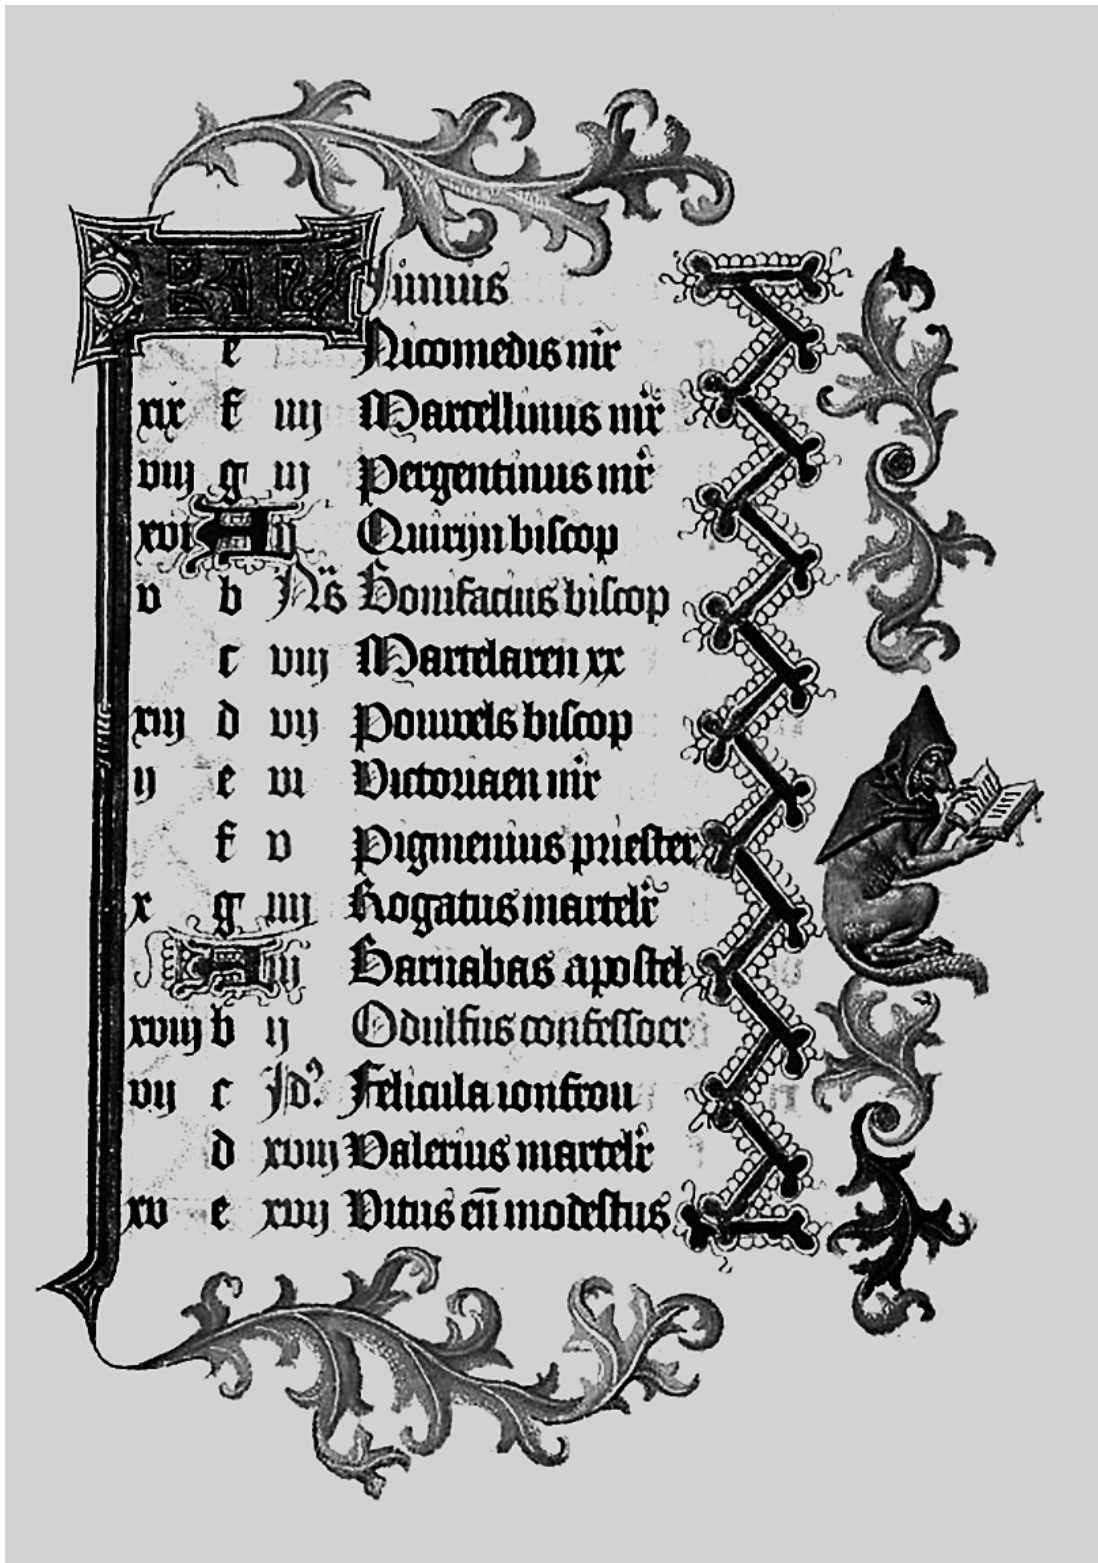 KAL Junius
e Nicomedis mr̃
xix f iiij Marcellinus mr̃
viij g iij Pergentinus mr̃
xvi A ij Quirijn biscop
v b Nōs Bonifacius biscop
c viij Martelaren xx
xiij d vij Pouwels biscop
ij e vi Victoriaen mr̃
f v Pigmenius priester
x g iiij Rogatus martelr̃
A iij Barnabas apostel
xviij b ij Odulfus confessoer
vij c Jd? Felicula ioncfrou
d xviij Valerius martelr̃
xv e xvij Vitus eñ modestus